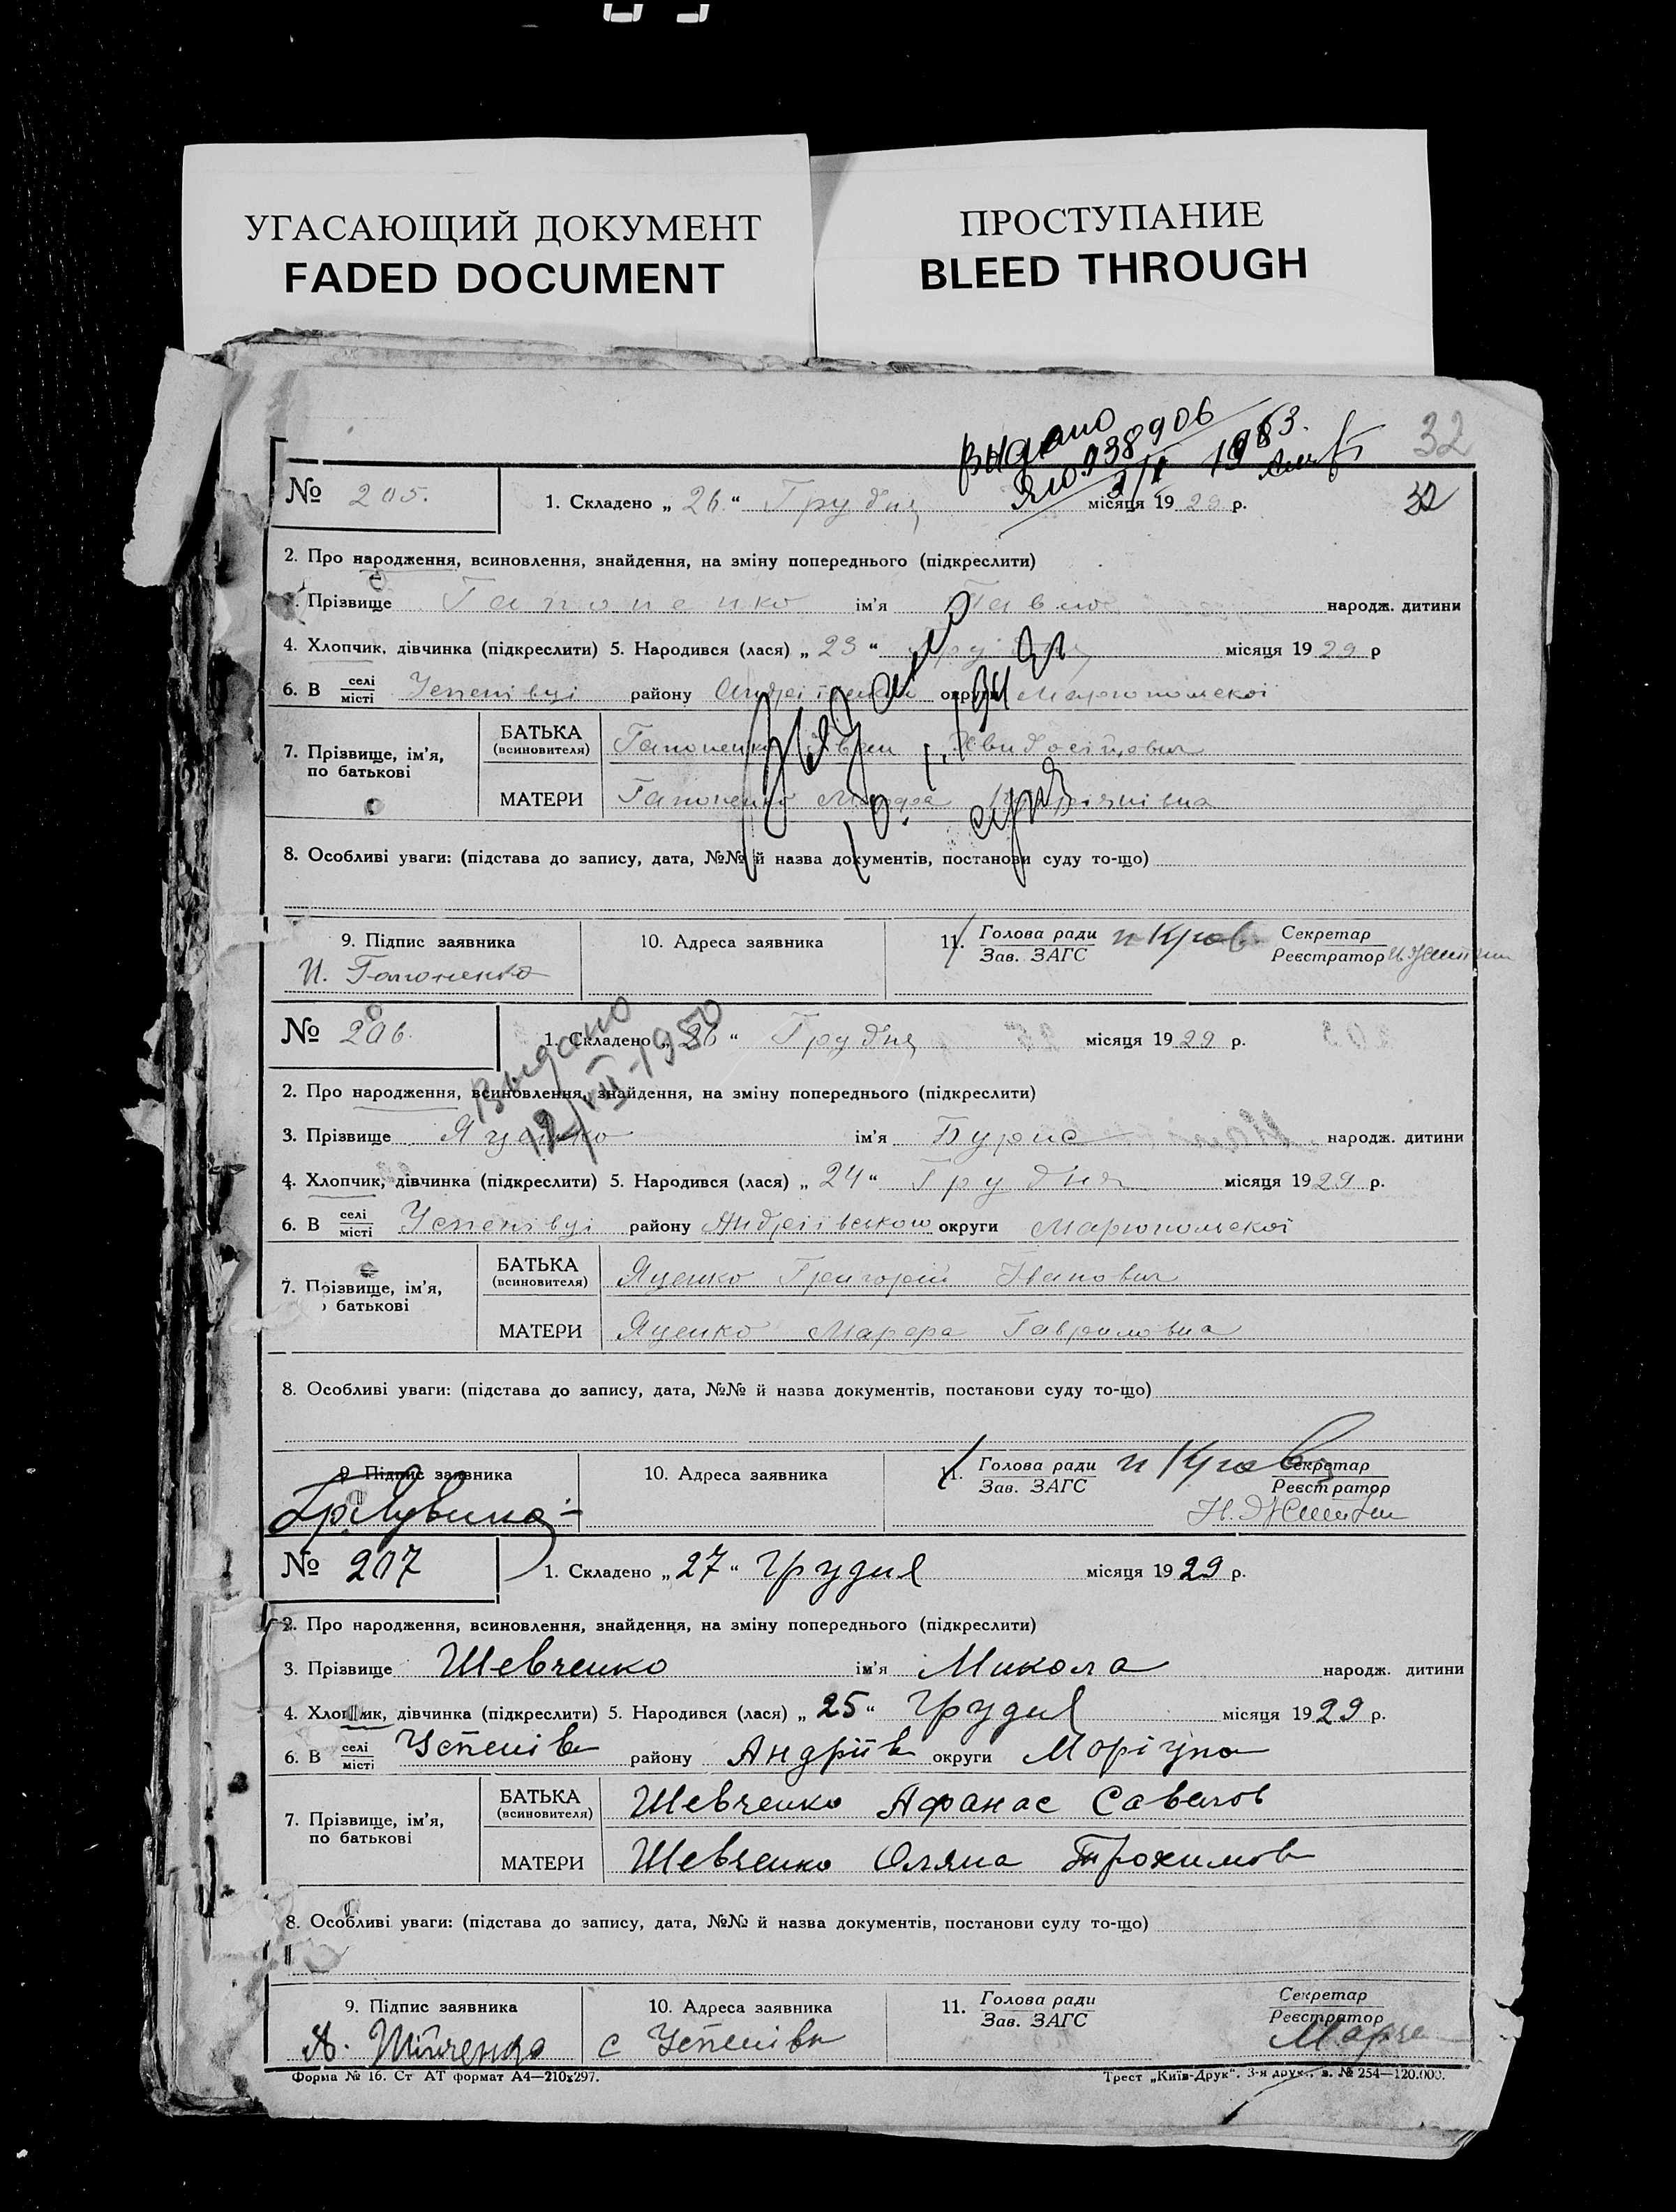 УГАСАЮЩИЙ ДОКУМЕНТ
FADED DOCUMENT
ПРОСТУПАНИЕ
BLEED THROUGH
Видано
938906
1983.
32
32
№ 205. 1. Складено „26“ Грудня місяця 1929 р.
2. Про народження, всиновлення, знайдення, на зміну попереднього (підкреслити)
Прізвище Гапоненко ім'я Павло народж. дитини
4. Хлопчик, дівчинка (підкреслити) 5. Народився (лася) „23“ Грудня місяця 1929 р
6. В селі/місті Успенівці району округи Маріюпольскої
7. Прізвище, ім'я, по батькові
БАТЬКА (всиновителя) Гапоненко Іван
МАТЕРИ Гапоненко Марфа
8. Особливі уваги: (підстава до запису, дата, №№ й назва документів, постанови суду то-що)
9. Підпис заявника 10. Адреса заявника 11. Голова ради/Зав. ЗАГС Секретар/Реєстратор
И. Гапоненко
№ 206. 1. Складено „26“ Грудня місяця 1929 р.
Выдано
12/VII-1950
2. Про народження, всиновлення, знайдення, на зміну попереднього (підкреслити)
3. Прізвище Яценко ім'я Бурис народж. дитини
4. Хлопчик, дівчинка (підкреслити) 5. Народився (лася) „24“ Грудня місяця 1929 р.
6. В селі/місті Успенівці району Андріївською округи Маріюпольскої
7. Прізвище, ім'я, батькові
БАТЬКА (всиновителя) Яценко Григорій Іванович
МАТЕРИ Яценко Марфа Гавриловна
8. Особливі уваги: (підстава до запису, дата, №№ й назва документів, постанови суду то-що)
9. Підпис заявника 10. Адреса заявника 11. Голова ради/Зав. ЗАГС Секретар/Реєстратор
№ 207 1. Складено „27“ грудня місяця 1929 р.
2. Про народження, всиновлення, знайдення, на зміну попереднього (підкреслити)
3. Прізвище Шевченко ім'я Микола народж. дитини
4. Хлопчик, дівчинка (підкреслити) 5. Народився (лася) „25“ грудня місяця 1929 р.
6. В селі/місті Успенів району Андріїв округи Маріупо
7. Прізвище, ім'я, по батькові
БАТЬКА (всиновителя) Шевченко Афанас Савелов
МАТЕРИ Шевченко Оляна Трохимов
8. Особливі уваги: (підстава до запису, дата, №№ й назва документів, постанови суду то-що)
9. Підпис заявника 10. Адреса заявника 11. Голова ради/Зав. ЗАГС Секретар/Реєстратор
А. с Успенівк
Форма № 16. Ст АТ формат А4—210х297. Трест „Київ-Друк“. 3-я друк., з. № 254—120.000.